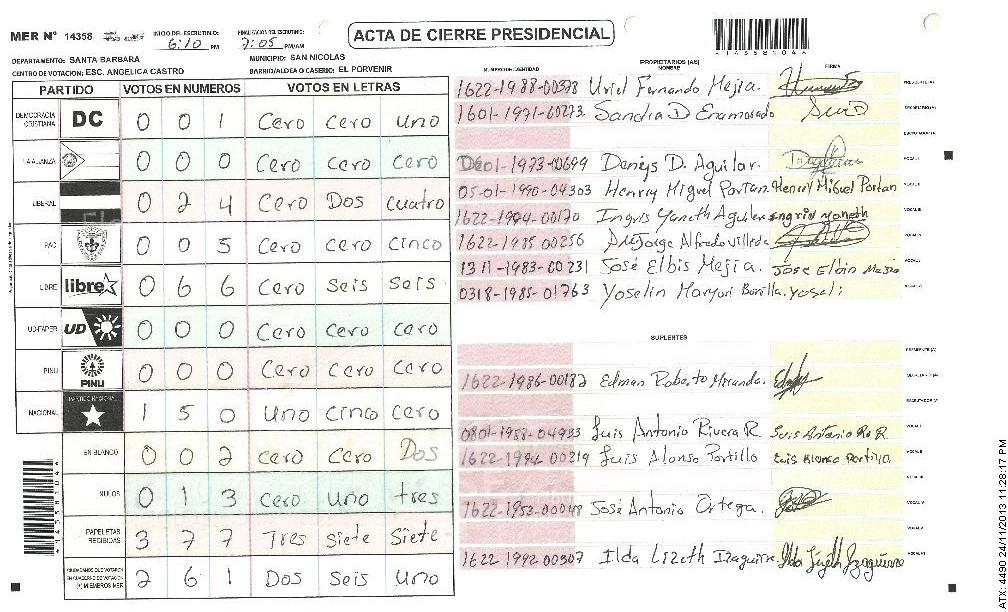 MER N° 14358
INICIO DEL ESCRUTINIO: 6:10 PM
FINALIZACION DEL ESCRUTINIO: 7:05 PM/AM
ACTA DE CIERRE PRESIDENCIAL
*14358104*
DEPARTAMENTO: SANTA BARBARA
MUNICIPIO: SAN NICOLAS
CENTRO DE VOTACION: ESC. ANGELICA CASTRO
BARRIO/ALDEA O CASERIO: EL PORVENIR
PARTIDO VOTOS EN NUMEROS VOTOS EN LETRAS
DEMOCRACIA CRISTIANA DC 0 0 1 Cero cero uno
LA ALIANZA 0 0 0 Cero cero cero
LIBERAL 0 2 4 Cero Dos cuatro
PAC 0 0 5 Cero cero cinco
LIBRE libre 0 6 6 Cero Seis Seis
UD-FAPER UD 0 0 0 Cero cero cero
PINU PINU 0 0 0 Cero cero cero
NACIONAL 1 5 0 Uno cinco cero
EN BLANCO 0 0 2 cero Cero Dos
NULOS 0 1 3 cero uno tres
PAPELETAS RECIBIDAS 3 7 7 Tres Siete Siete
CIUDADANOS QUE VOTARON EN CUADERNO DE VOTACION (+) MIEMBROS MER 2 6 1 Dos Seis uno
*14358104*
PROPIETARIOS (AS)
NUMERO DE IDENTIDAD NOMBRE FIRMA
1622-1988-00578 Uriel Fernando Mejia. PRESIDENTE (A)
1601-1971-00273 Sandra D Enamorado SECRETARIO (A)
ESCRUTADOR (A)
0601-1973-00699 Denys D. Aguilar. VOCAL I
05-01-1990-04303 Henrry Miguel Portan. Henrry Miguel Portan VOCAL II
1622-1994-00170 Ingris Yaneth Aguilar VOCAL III
1622-1985 00256 Jorge Alfredo Villeda VOCAL IV
1311-1983-00231 José Elbis Mejia. VOCAL V
0318-1985-01763 Yoselin Maryori Bonilla. yoseli VOCAL VI
SUPLENTES
PRESIDENTE (A)
1622-1986-00182 Edman Roberto Miranda. SECRETARIO (A)
ESCRUTADOR (A)
0801-1988-04933 Luis Antonio Rivera R. Luis Antonio Ri R. VOCAL I
1622-1994-00319 Luis Alonso Portillo Luis Alonso Portillo VOCAL II
VOCAL III
1622-1953-00048 José Antonio Ortega. VOCAL IV
VOCAL V
1622-1992-00307 Ilda Lizeth Izaguirre VOCAL VI
ATX: 4490 24/11/2013 11:28:17 PM